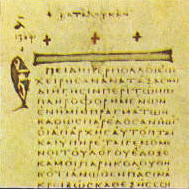 κατα λουκαν
ΕΠΕΙΔΗΠΕΡΠΟΛΛΟΙΕΠΕ
ΧΕΙΡΗΣΑΝΑΝΑΤΑΞΑΣΘΑΙ
ΔΙΗΓΗΣΙΝΠΕΡΙΤΩΝΠΕ
ΠΛΗΡΟΦΟΡΗΜΕΝΩΝ
ΕΝΗΜΙΝΠΡΑΓΜΑΤΩΝ
ΚΑΘΩΣΠΑΡΕΔΟΣΑΝΗΜΙΝ
ΟΙΑΠΑΡΧΗΣΑΥΤΟΠΤΑΙ
ΚΑΙΥΠΗΡΕΤΑΙΓΕΝΟΜΕ
ΝΟΙΤΟΥΛΟΓΟΥΕΔΟΞΕ
ΚΑΜΟΙΠΑΡΗΚΟΛΟΥΘΗ
ΚΟΤΙΑΝΩΘΕΝΠΑΣΙΝΑ
ΚΡΙΒΩΣΚΑΘΕΞΗΣΣΟΙ